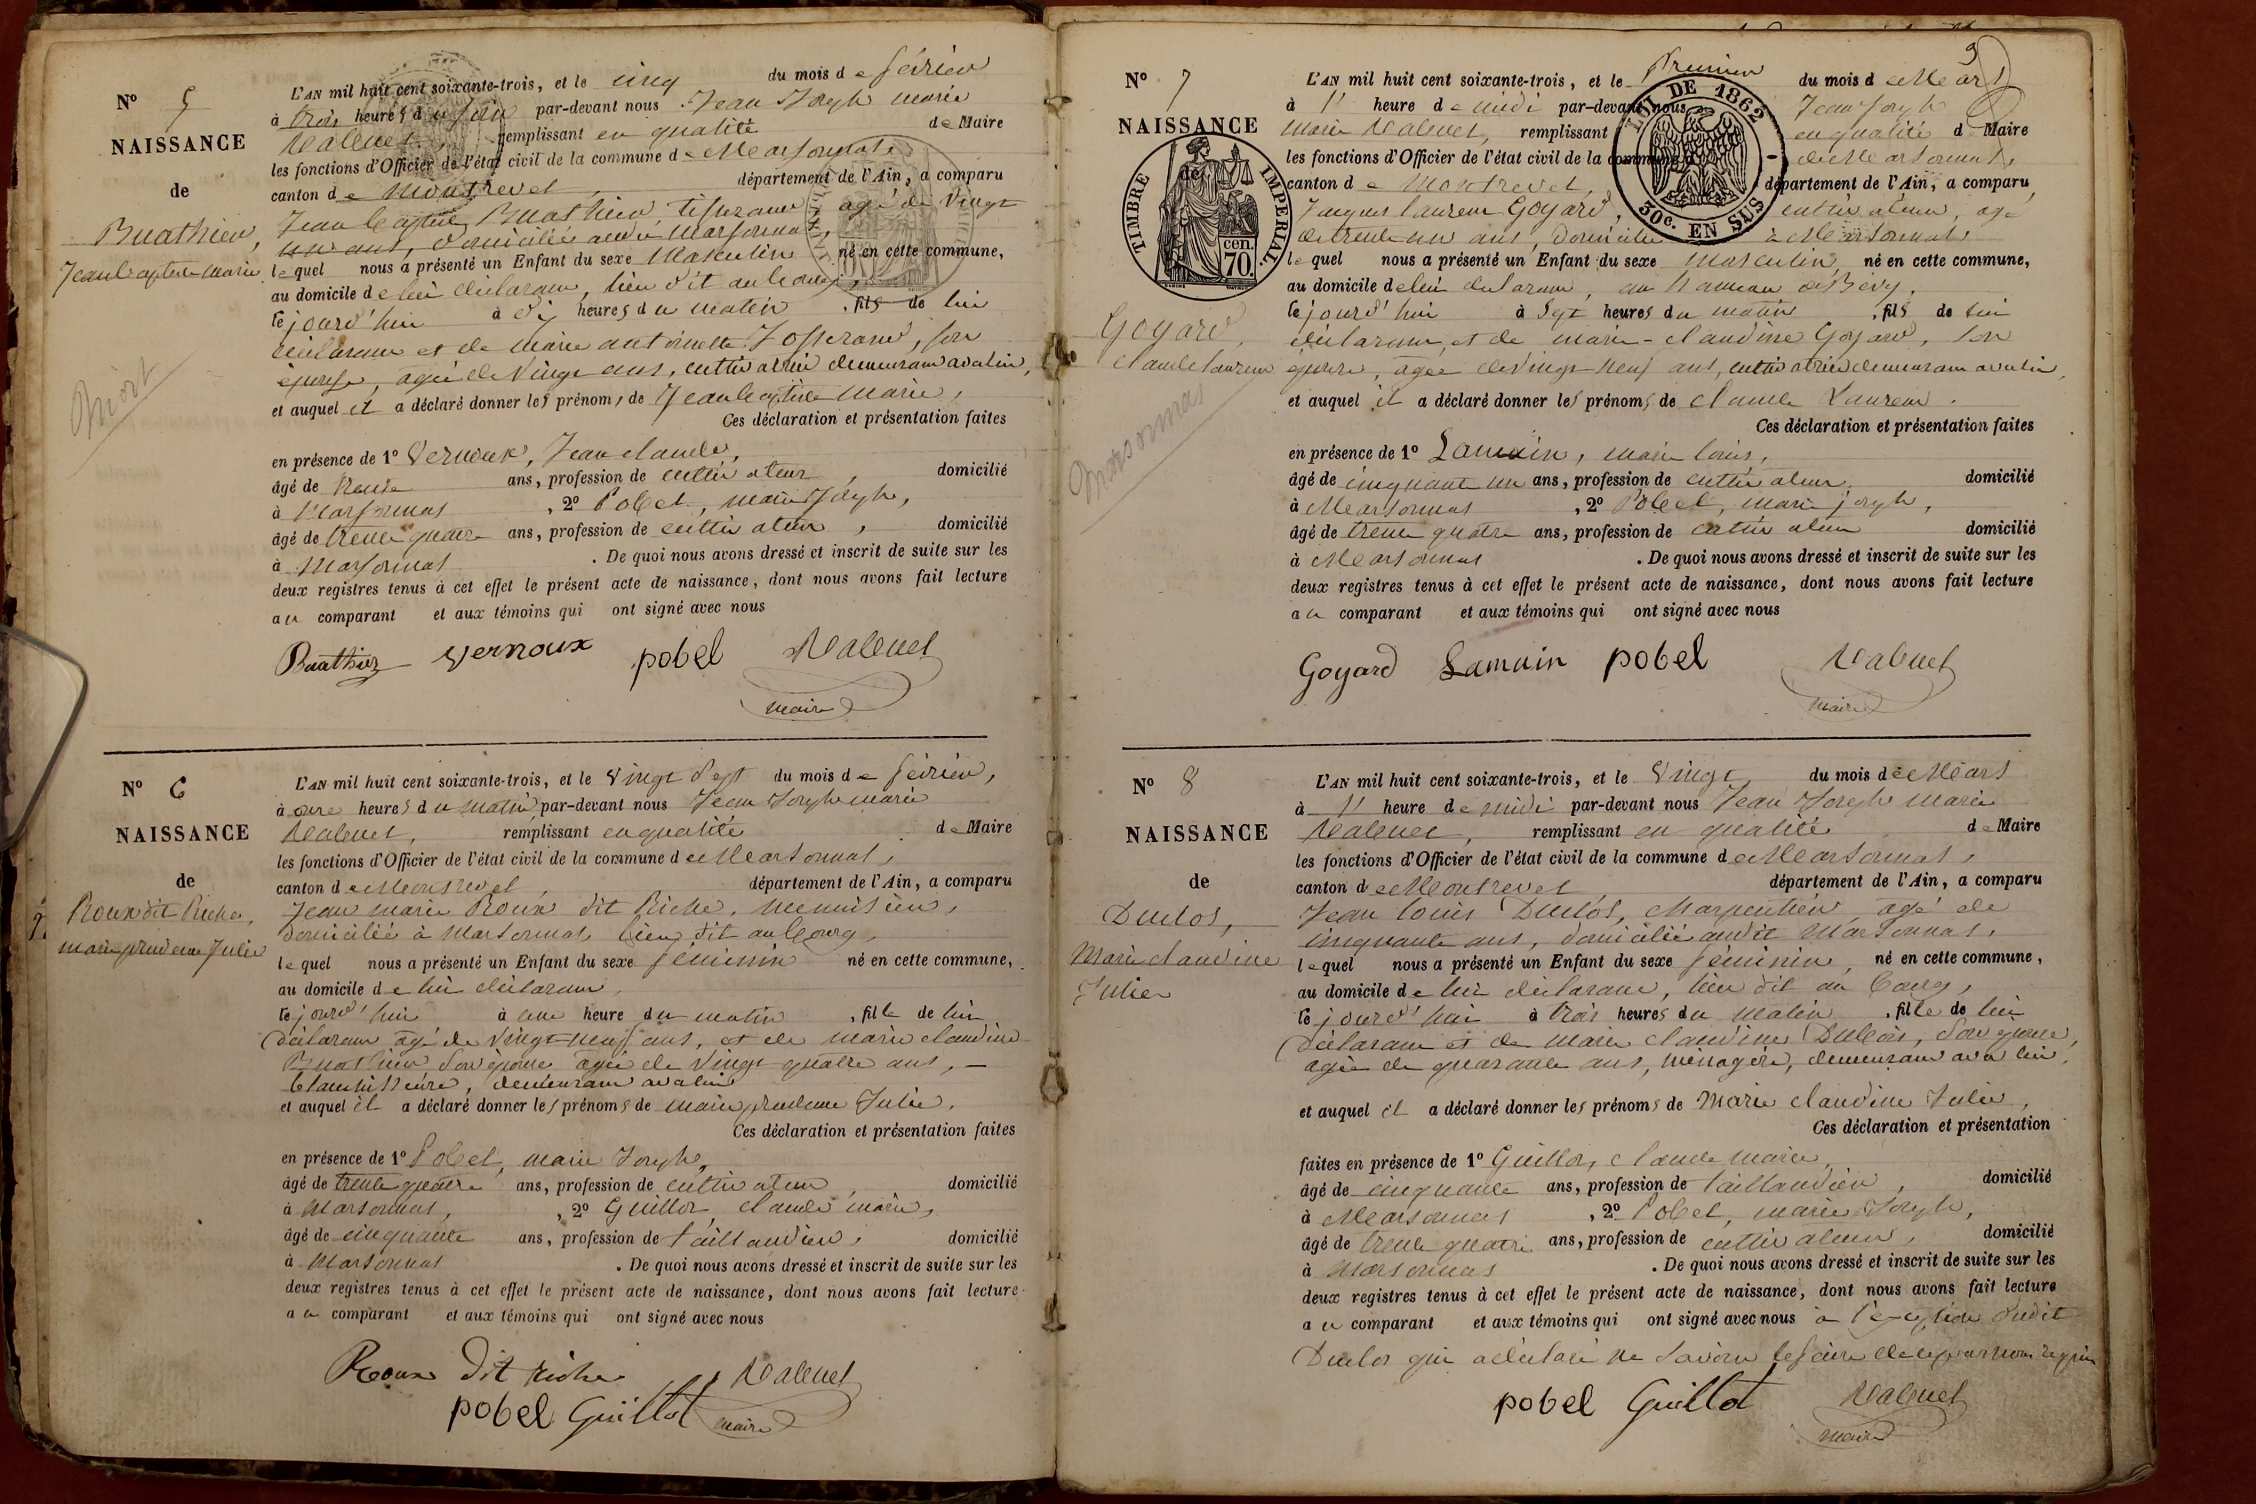 N° 5
NAISSANCE
de
Buathier,
Jean Baptiste Marie
Mort
L'AN mil huit cent soixante-trois, et le cinq du mois de février
à trois heures du soir par-devant nous Jean Joseph marie
remplissant en qualité de Maire
les fonctions d'Officier de l'état civil de la commune de Marsonnas,
canton de Montrevel, département de l'Ain, a comparu
Jean Baptiste Buathier, tisserand, agé de Vingt
un ans, domicilié audit Marsonnas,
lequel nous a présenté un Enfant du sexe Masculin né en cette commune,
au domicile de lui déclarant, lieu dit au bourg,
le jourd'hui à dix heures du matin, fils de lui
déclarant et de marie antoinette Josserand, son
épouse, agée de Vingt ans, cultivatrice demeurant avec lui,
et auquel il a déclaré donner les prénoms de Jean Baptiste Marie,
Ces déclaration et présentation faites
en présence de 1° Vernoux, Jean claude,
âgé de trente ans, profession de cultivateur, domicilié
à Marsonnas, 2° Pobel, marie Joseph,
âgé de trente quatre ans, profession de cultivateur, domicilié
à Marsonnas. De quoi nous avons dressé et inscrit de suite sur les
deux registres tenus à cet effet le présent acte de naissance, dont nous avons fait lecture
au comparant et aux témoins qui ont signé avec nous
Buathier Vernoux pobel
maire
N° 6
NAISSANCE
de
Roux dit Riche,
marie prudence Julie
L'AN mil huit cent soixante-trois, et le Vingt Sept du mois de février,
à onze heures du matin par-devant nous Jean Joseph marie
remplissant en qualité de Maire
les fonctions d'Officier de l'état civil de la commune de Marsonnas,
canton de Montrevel, département de l'Ain, a comparu
Jean marie Roux dit Riche, menuisier,
domicilié à Marsonnas lieu dit au bourg,
lequel nous a présenté un Enfant du sexe féminin né en cette commune,
au domicile de lui déclarant,
le jourd'hui à une heure du matin, fille de lui
déclarant agé de Vingt-neuf ans, et de marie claudine
Buathier son épouse agée de Vingt quatre ans,
blanchisseuse, demeurant avec lui
et auquel il a déclaré donner les prénoms de marie prudence Julie.
Ces déclaration et présentation faites
en présence de 1° Pobel, marie Joseph,
âgé de trente quatre ans, profession de cultivateur, domicilié
à Marsonnas, 2° Guillot, claude marie,
âgé de cinquante ans, profession de taillandier, domicilié
à Marsonnas. De quoi nous avons dressé et inscrit de suite sur les
deux registres tenus à cet effet le présent acte de naissance, dont nous avons fait lecture
au comparant et aux témoins qui ont signé avec nous
Roux dit riche
pobel Guillot maire
9
N° 7
NAISSANCE
de
TIMBRE IMPERIAL.
70. cen.
LOI DE 1862
30c. EN SUS
Goyard,
claude laurent
Marsonnas
L'AN mil huit cent soixante-trois, et le Premier du mois de Mars
à 1' heure de midi par-devant nous Jean Joseph
marie remplissant en qualité de Maire
les fonctions d'Officier de l'état civil de la commune de Marsonnas,
canton de Montrevel, département de l'Ain, a comparu
Jacques laurent Goyard, cultivateur, agé
de trente un ans, domicilié à Marsonnas
lequel nous a présenté un Enfant du sexe masculin, né en cette commune,
au domicile de lui déclarant, au hameau de Bévy,
le jourd'hui à Sept heures du matin, fils de lui
déclarant, et de marie-claudine Goyard, son
épouse, agée de Vingt-neuf ans, cultivatrice demeurant avec lui,
et auquel il a déclaré donner les prénoms de claude Laurent.
Ces déclaration et présentation faites
en présence de 1° Lamain, marie louis,
âgé de cinquante un ans, profession de cultivateur domicilié
à Marsonnas, 2° Pobel, marie joseph,
âgé de trente quatre ans, profession de cultivateur domicilié
à Marsonnas. De quoi nous avons dressé et inscrit de suite sur les
deux registres tenus à cet effet le présent acte de naissance, dont nous avons fait lecture
au comparant et aux témoins qui ont signé avec nous
Goyard Lamain pobel
maire
N° 8
NAISSANCE
de
Duclos,
Marie claudine
Julie
L'AN mil huit cent soixante-trois, et le Vingt du mois de Mars
à 1' heure de midi par-devant nous Jean Joseph marie
remplissant en qualité de Maire
les fonctions d'Officier de l'état civil de la commune de Marsonnas,
canton de Montrevel département de l'Ain, a comparu
Jean louis Duclos, charpentier, agé de
cinquante ans, domicilié audit Marsonnas,
lequel nous a présenté un Enfant du sexe féminin, né en cette commune,
au domicile de lui déclarant, lieu dit au bourg,
le jourd'hui à trois heures du matin, fille de lui
déclarant et de marie claudine Dubois, son épouse,
agée de quarante ans, ménagère, demeurant avec lui,
et auquel il a déclaré donner les prénoms de Marie claudine Julie,
Ces déclaration et présentation
faites en présence de 1° Guillot, claude marie,
âgé de cinquante ans, profession de taillandier, domicilié
à Marsonnas, 2° Pobel, marie Joseph,
âgé de trente quatre ans, profession de cultivateur, domicilié
à Marsonnas. De quoi nous avons dressé et inscrit de suite sur les
deux registres tenus à cet effet le présent acte de naissance, dont nous avons fait lecture
au comparant et aux témoins qui ont signé avec nous à l'exception dudit
Duclos qui a déclaré ne Savoir le faire de ce par nous requis
pobel Guillot
maire